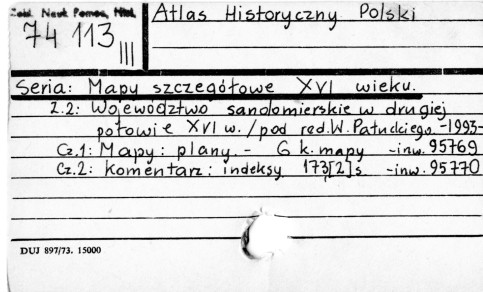 Zakł. Nauk Pomoc. Hist.
74 113 III
Atlas Historyczny Polski
Seria: Mapy szczegółowe XVI wieku.
2.2: Województwo sandomierskie w drugiej
połowie XVI w. / pod red. W. Pałuckiego. -1993-
Cz.1: Mapy: plany. - 6 k. mapy -inw. 95769
Cz.2: Komentarz: indeksy 173[2]s -inw. 95770
DUJ 897/73. 15000